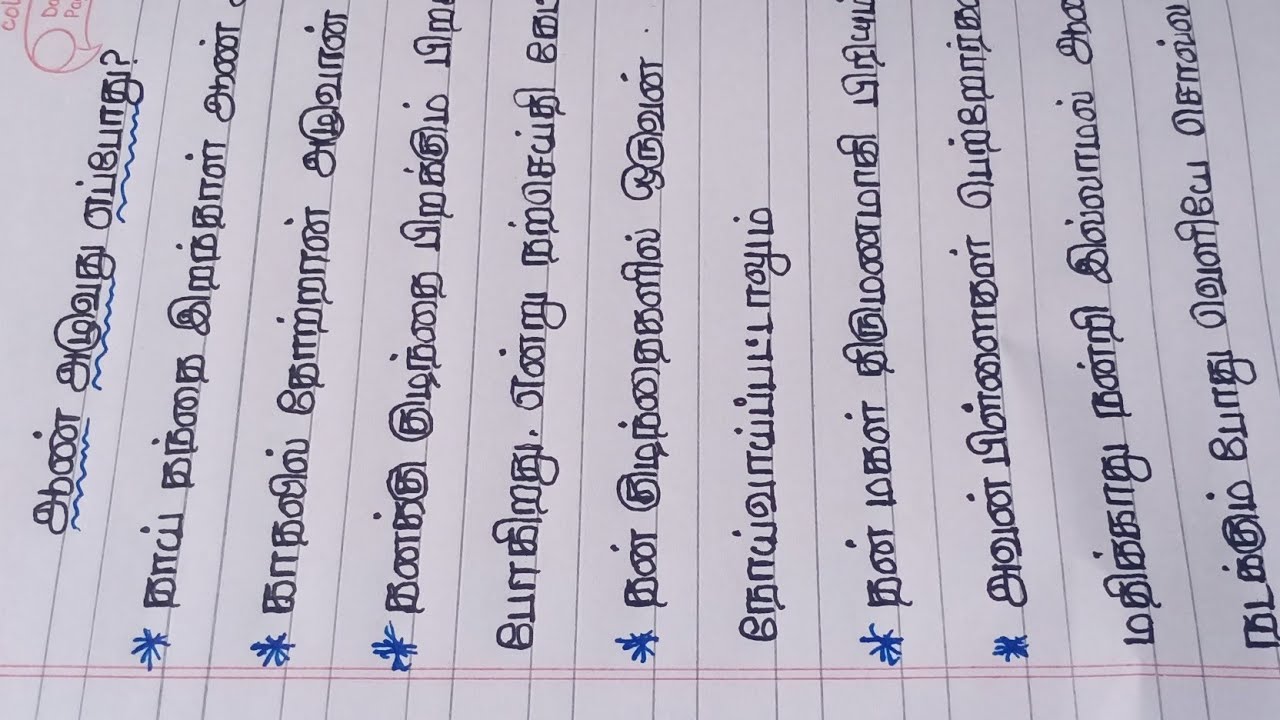 ஆண் அழுவது எப்போது?
* தாய் தந்தை இறந்தாள் ஆண்
* காதலில் தோற்றான் அழுவான்
* தனக்கு குழந்தை பிறக்கும்
போகிறது. என்று நற்செய்தி
* தன் குழந்தைகளில் ஒருவன்.
நோய்வாய்ப்பட்டாலும்
* தன் மகள் திருமணமாகி
* அவன் பிள்ளைகள்
மதிக்காது நன்றி இல்லாமல்
நடக்கும் போது வெளியே